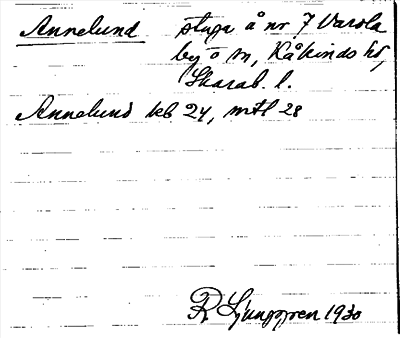 Annelund stuga å nr 7 Varola
by o sn, Kåkinds hd,
Skarab. l.
Annelund kb 24, mtl 28
R Ljunggren 1930